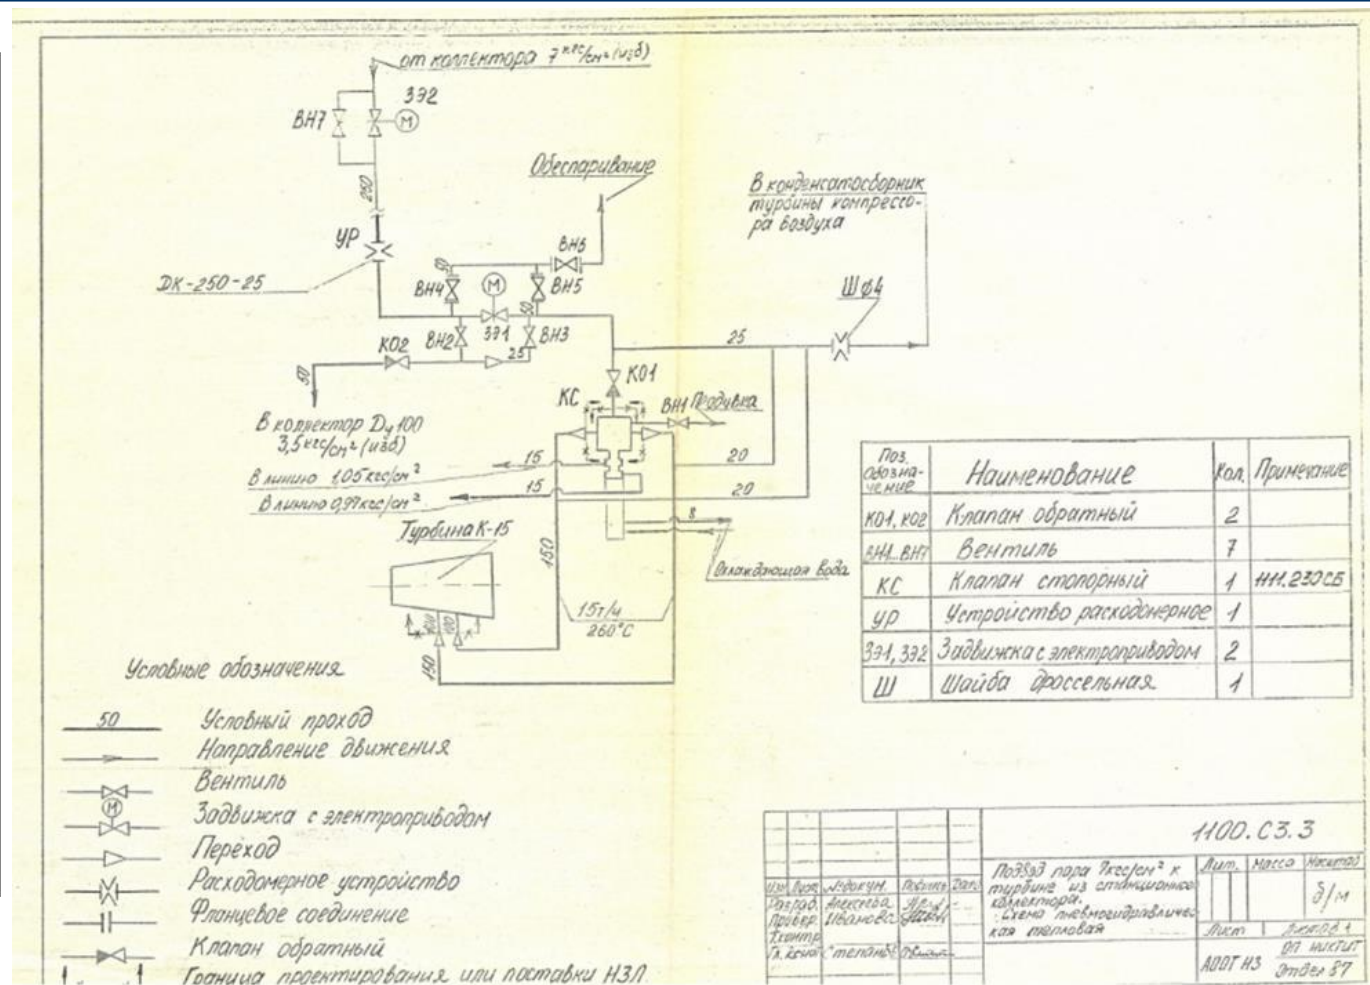 от коллектора 7 кгс/см² (изб)
ЗЭ2
ВН7
М
250
Обеспаривание
В конденсатосборник
турбины компрессо-
ра воздуха
УР
ВН6
50
ДК-250-25
ВН4
М
ВН5
Ш ф4
50
ВН2
ЗЭ1
ВН3
25
КО2
25
50
КО1
КС
ВН1
Продувка
В коллектор Dу 100
3,5 кгс/см² (изб)
15
20
В линию 1,05 кгс/см²
15
20
В линию 0,97 кгс/см²
8
Турбина К-15
150
Охлаждающая вода
15т/ч
260°С
150
Поз.
обозна-
чение
Наименование
Кол.
Примечание
КО1, КО2
Клапан обратный
2
ВН1...ВН7
Вентиль
7
КС
Клапан стопорный
1
1111.230СБ
УР
Устройство расходомерное
1
ЗЭ1, ЗЭ2
Задвижка с электроприводом
2
Ш
Шайба дроссельная
1
Условные обозначения
50
Условный проход
Направление движения
Вентиль
М
Задвижка с электроприводом
Переход
Расходомерное устройство
Фланцевое соединение
Клапан обратный
Граница проектирования или поставки НЗЛ
1100.СЗ.3
Подвод пара 7кгс/см² к
турбине из станционного
коллектора.
Схема пневмогидравличес-
кая тепловая
Лит.
Масса
Масштаб
б/м
Изм
Лист
№докум.
Подпись
Дата
Разраб.
Алексеева
Провер.
Иванова
Т.контр
Степанов
Лист
Листов 1
АООТ НЗ
Отдел 87